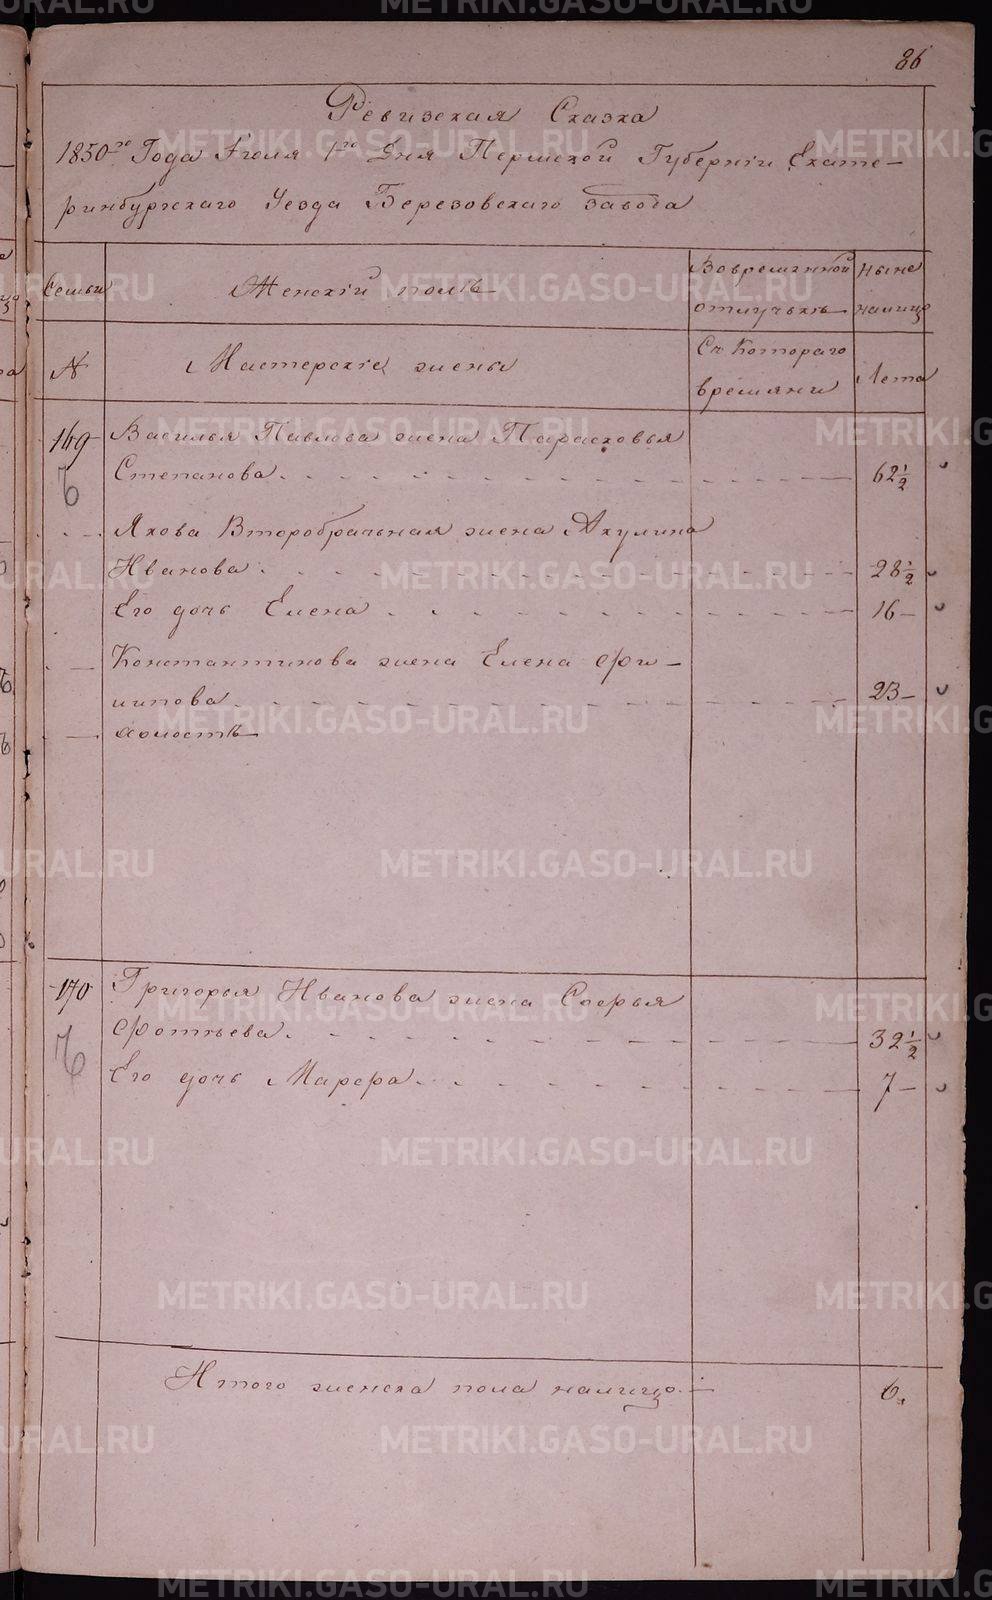 86
Ревизская Сказка
1850го Года Iюля 1го Дня Пермской Губернiи Екате-
ринбургскаго Уезда Березовскаго завода
Семьи
Женскiй полъ
Вовременной
отлучькъ
Ныне
налицо
№
Мастерскiе жены
Съ Котораго
времяни
Лета
169
Василья Павлова жена Парасковья
Степанова
62 1/2
Якова Второбрачьная жена Акулина
Иванова
28 1/2
Его дочь Елена
16
Константинова жена Елена Фи-
липова
23
холостъ
170
Григорья Иванова жена Софья
Фотеева
32 1/2
Его дочь Марфа
7
Итого женска пола налицо
6
METRIKI.GASO-URAL.RU